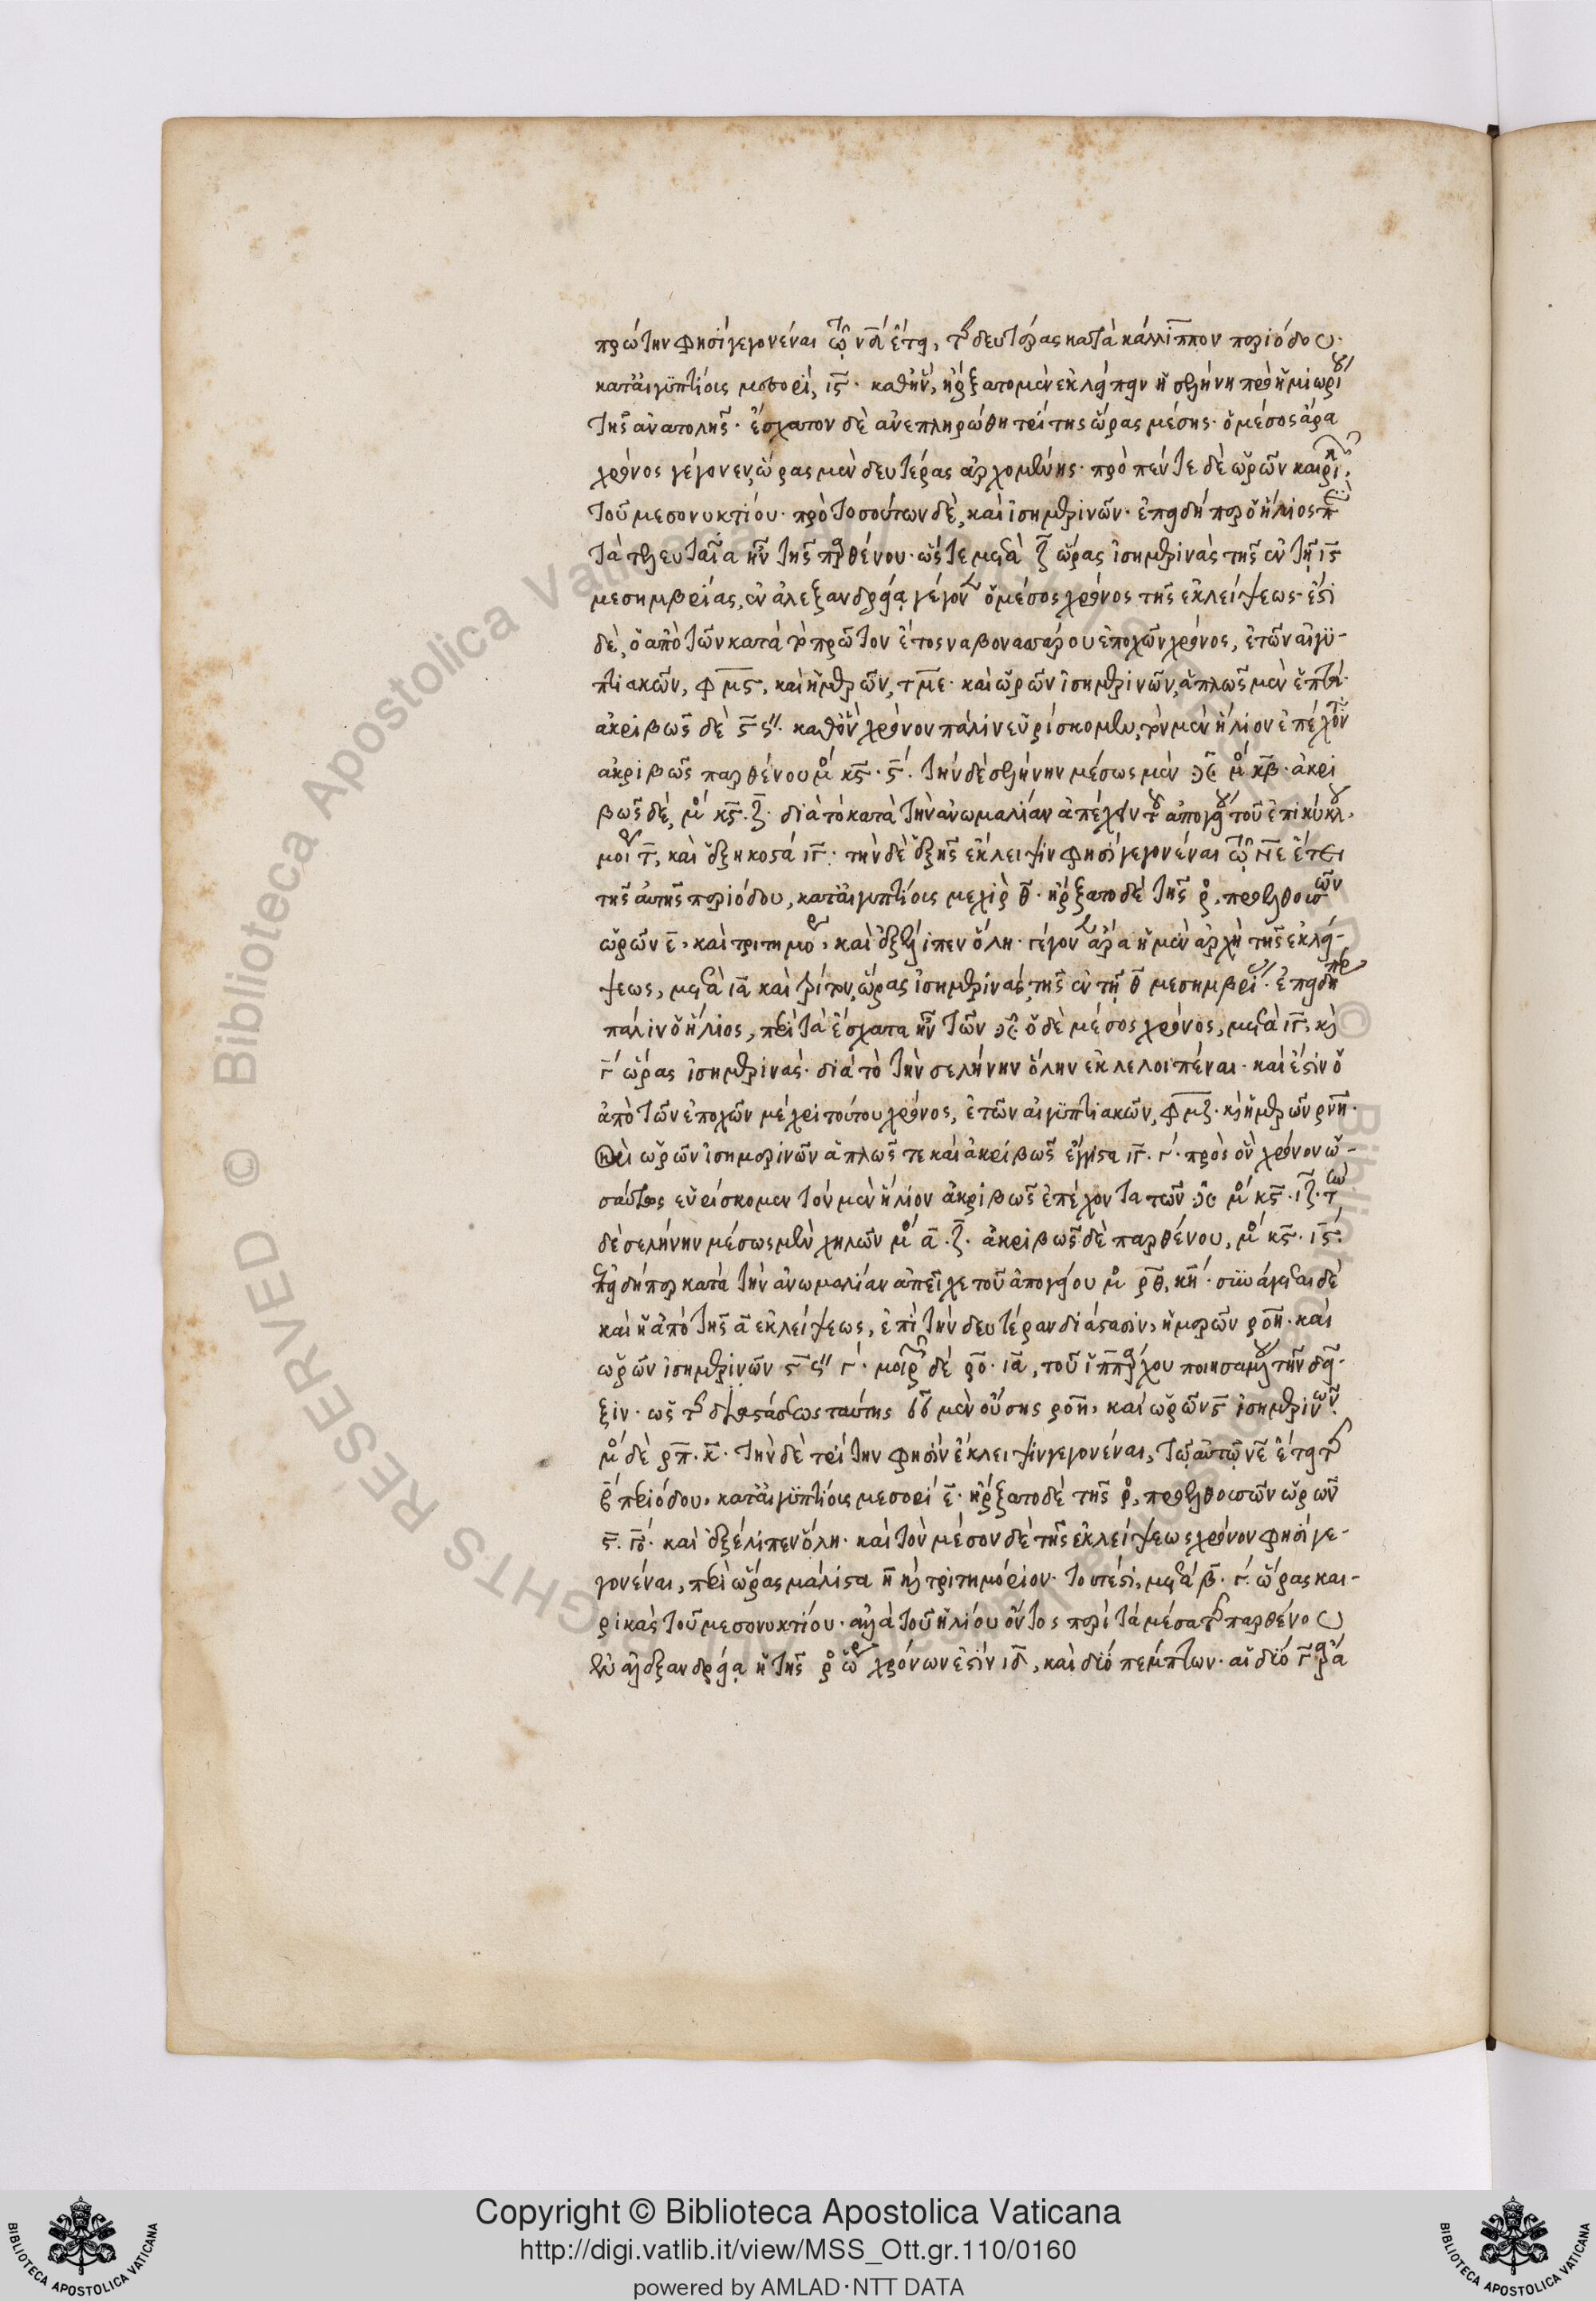 πρώτην φησὶ γεγονέναι τῷ νδ ἔτει, τῆς δευτέρας κατὰ κάλλιππον περιόδου·
κατ' αἰγυπτίους μεσορὶ, ις· καθ' ἣν, ἤρξατο μὲν ἐκλείπειν ἡ σελήνη πρὸ ἡμιωρίου
τῆς ἀνατολῆς· ἔσχατον δὲ ἀνεπληρώθη τρίτης ὥρας μέσης· ὁ μέσος ἄρα
χρόνος γέγονεν, ὥρας μὲν δευτέρας ἀρχομένης· πρὸ πέντε δὲ ὡρῶν καιρικῶν,
τοῦ μεσονυκτίου· πρὸ τοσούτων δὲ, καὶ ἰσημερινῶν· ἐπειδήπερ ὁ ἥλιος περὶ
τὰ τελευταῖα ἦν τῆς παρθένου· ὥστε μετὰ ζ ὥρας ἰσημερινὰς τῆς ἐν τῇ ις
μεσημβρίας, ἐν ἀλεξανδρείᾳ γέγονεν ὁ μέσος χρόνος τῆς ἐκλείψεως· ἔστι
δὲ, ὁ ἀπὸ τῶν κατὰ τὸ πρῶτον ἔτος ναβονασάρου ἐποχῶν χρόνος, ἐτῶν αἰγυ-
πτιακῶν, φμς, καὶ ἡμερῶν, τμε· καὶ ὡρῶν ἰσημερινῶν, ἁπλῶς μὲν ἑπτά·
ἀκριβῶς δὲ ς ς''· καθ' ὃν χρόνον πάλιν εὑρίσκομεν, τὸν μὲν ἥλιον ἐπέχοντα
ἀκριβῶς παρθένου μο κς· ς· τὴν δὲ σελήνην μέσως μὲν ἰχθύων μο κβ· ἀκρι
βῶς δὲ, μο κς· ζ· διὰ τὸ κατὰ τὴν ἀνωμαλίαν ἀπέχειν τοῦ ἀπογείου τοῦ ἐπικύκλου,
μοίρας τ, καὶ ἑξηκοστὰ ιγ· τὴν δὲ ἑξῆς ἔκλειψιν φησὶ γεγονέναι τῷ νε ἔτει
τῆς αὐτῆς περιόδου, κατ' αἰγυπτίους μεχὶρ θ· ἤρξατο δὲ τῆς νυκτὸς, προελθουσῶν
ὡρῶν ε, καὶ τριτημορίου, καὶ ἐξέλιπεν ὅλη· γέγονεν ἄρα ἡ μὲν ἀρχὴ τῆς ἐκλεί-
ψεως, μετὰ ια καὶ τρίτον, ὥρας ἰσημερινὰς, τῆς ἐν τῇ θ μεσημβρίας· ἐπειδήπερ
πάλιν ὁ ἥλιος, περὶ τὰ ἔσχατα ἦν τῶν ἰχθύων· ὁ δὲ μέσος χρόνος, μετὰ ιγ, καὶ
γ ὥρας ἰσημερινὰς· διὰ τὸ τὴν σελήνην ὅλην ἐκλελοιπέναι· καὶ ἔστιν ὁ
ἀπὸ τῶν ἐποχῶν μέχρι τούτου χρόνος, ἐτῶν αἰγυπτιακῶν, φμζ· καὶ ἡμερῶν ρνη·
καὶ ὡρῶν ἰσημερινῶν ἁπλῶς τε καὶ ἀκριβῶς ἔγγιστα ιγ· γ· πρὸς ὃν χρόνον ὡ-
σαύτως εὑρίσκομεν τὸν μὲν ἥλιον ἀκριβῶς ἐπέχοντα τῶν ἰχθύων μο κς· ιζ· τὴν
δὲ σελήνην μέσως μὲν χηλῶν μο α· ζ· ἀκριβῶς δὲ παρθένου, μο κς· ις·
ἐπειδήπερ κατὰ τὴν ἀνωμαλίαν ἀπεῖχε τοῦ ἀπογείου μο ρθ, κη· συνάγεται δὲ
καὶ ἡ ἀπὸ τῆς α ἐκλείψεως, ἐπὶ τὴν δευτέραν διάστασιν, ἡμερῶν ροη· καὶ
ὡρῶν ἰσημερινῶν ς ς'' γ· μοιρῶν δὲ ρο· ια, τοῦ ἱππάρχου ποιησαμένου τὴν δεῖ-
ξιν· ὡς τῆς διαστάσεως ταύτης 𝛝𝛝 μὲν οὔσης ροη, καὶ ὡρῶν ς ἰσημερινῶν·
μο δὲ ρπ· κ· τὴν δὲ τρίτην φησὶν ἔκλειψιν γεγονέναι, τῷ αὐτῷ νε ἔτει τῆς
β περιόδου, κατ' αἰγυπτίους μεσορὶ ε· ἤρξατο δὲ τῆς νυκτὸς, προελθουσῶν ὡρῶν
ς· γο· καὶ ἐξέλιπεν ὅλη· καὶ τὸν μέσον δὲ τῆς ἐκλείψεως χρόνον φησὶ γε-
γονέναι, περὶ ὥρας μάλιστα η καὶ τριτημόριον· τουτέστι, μετὰ β· γ· ὥρας και-
ρικὰς τοῦ μεσονυκτίου· ἀλλὰ τοῦ ἡλίου ὄντος περὶ τὰ μέσα τῆς παρθένου
ἐν ἀλεξανδρείᾳ ἡ τῆς νυκτὸς ὥρα χρόνων ἐστὶν ιδ, καὶ δύο πέμπτων· αἱ δύο γ ἄρα